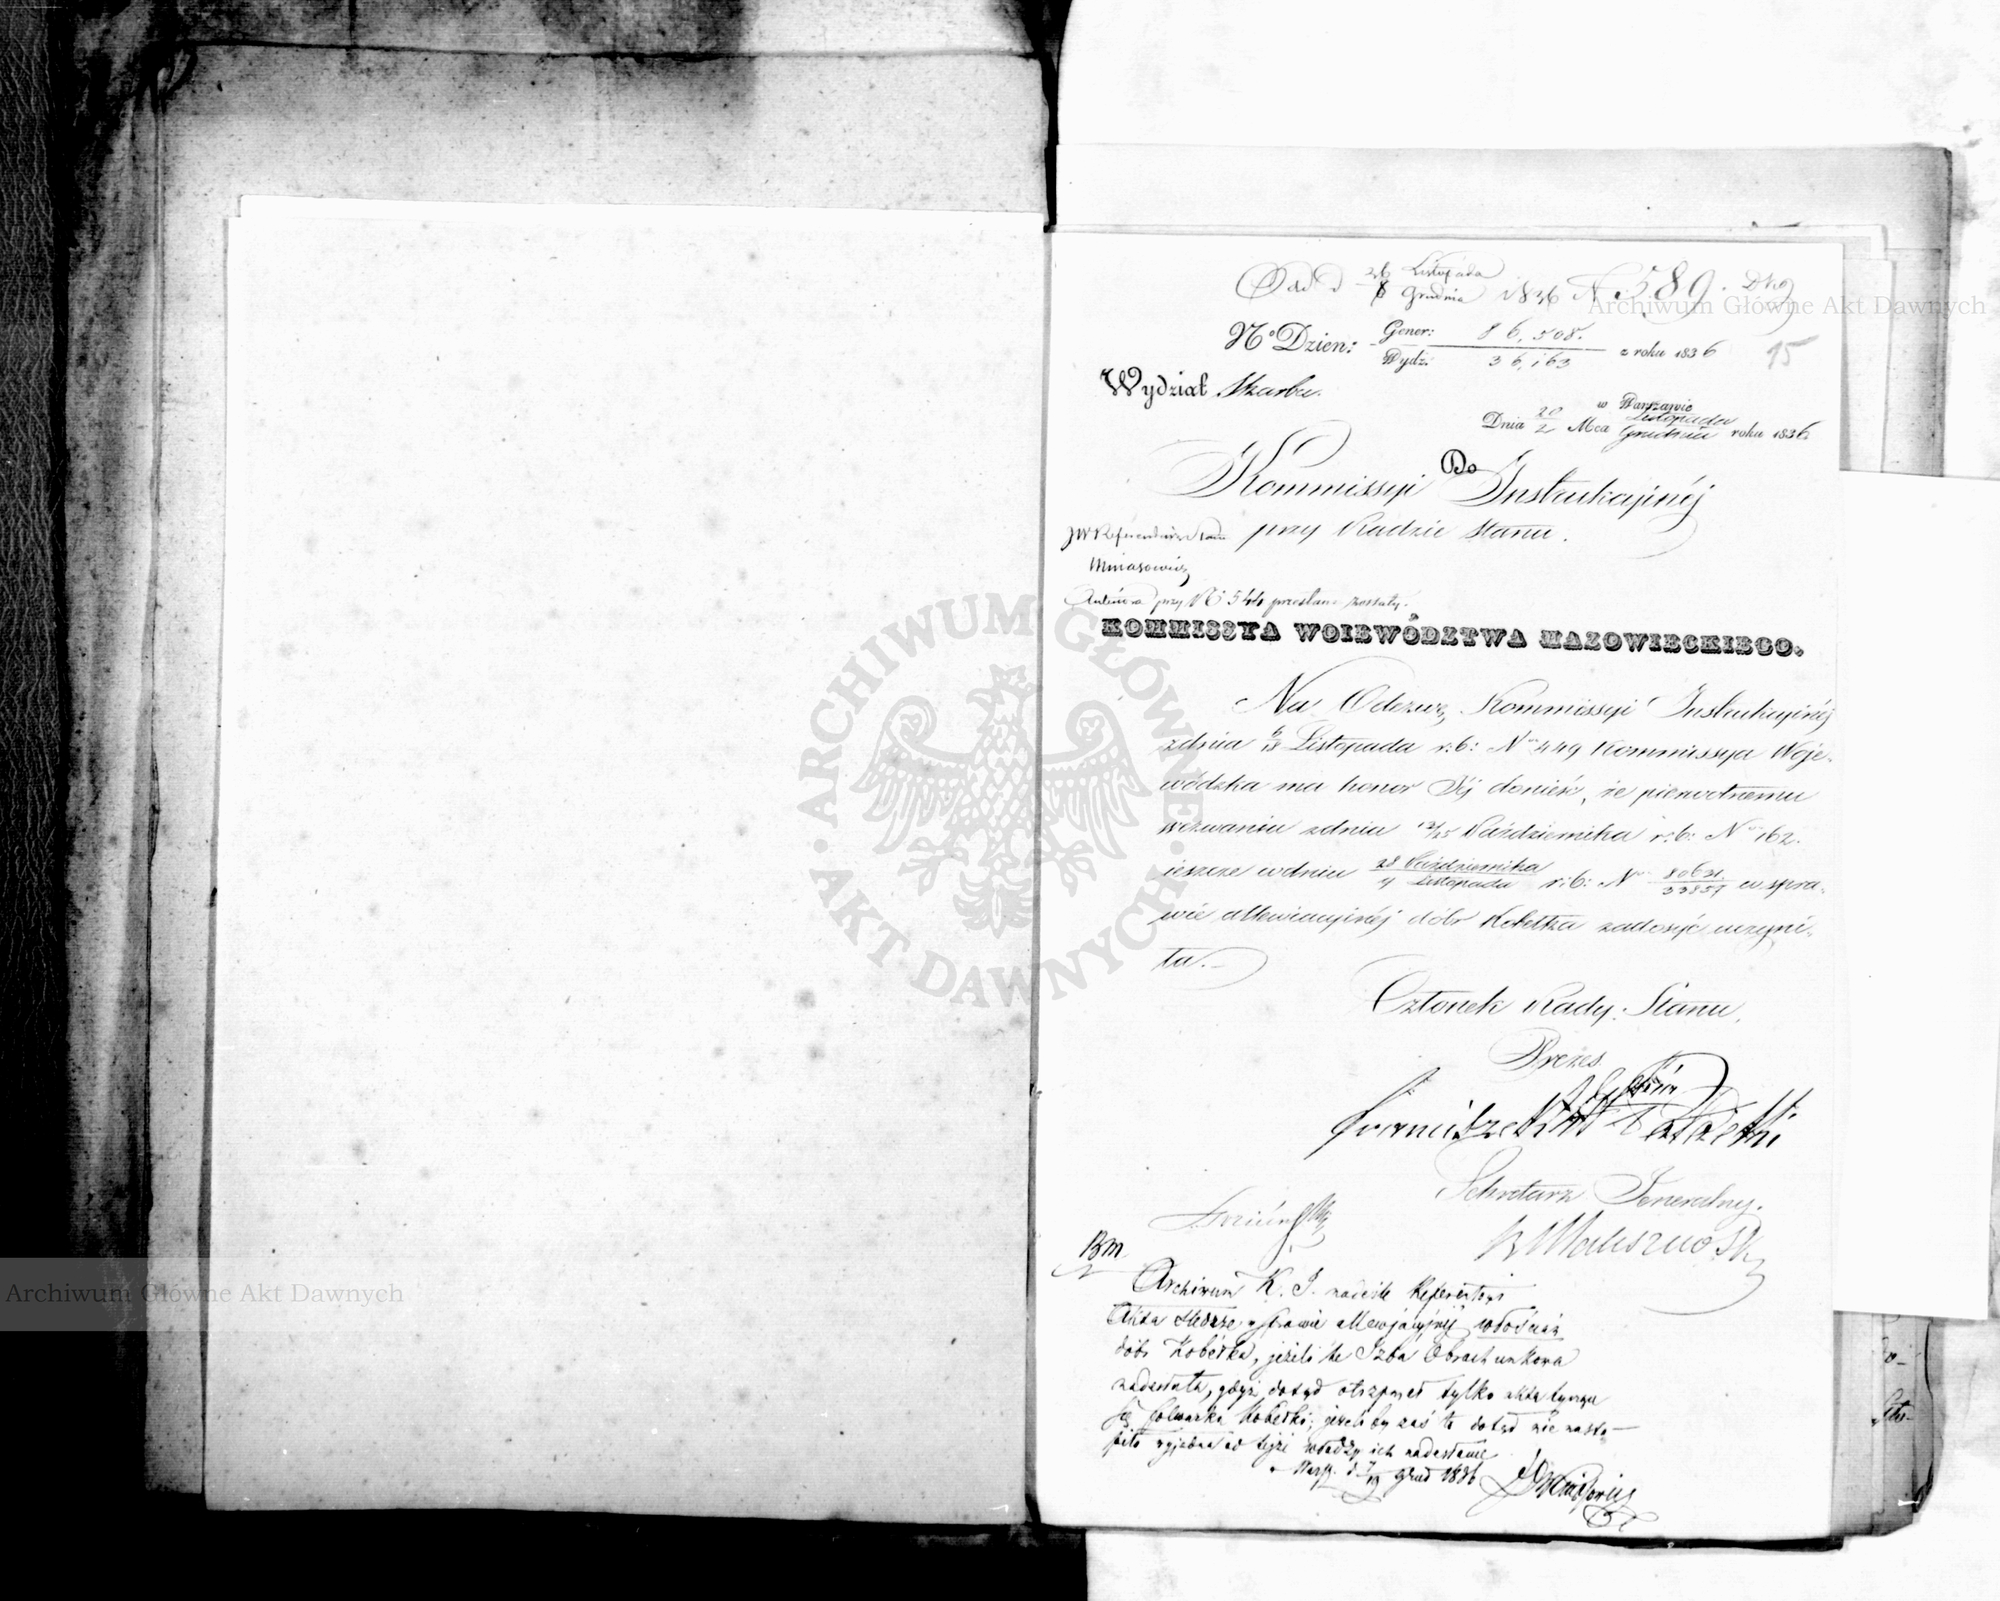 Odd d 26/8 Listopada/Grudnia 1836 N 589.
No Dzien: Gener: 86,508. / Wydz: 36,163 z roku 1836
15
Wydział Skarbu.
w Warszawie
Dnia 20/2 Mca Listopada/Grudnia roku 1836
Do
Kommissyi Instrukcyjnéj
przy Radzie Stanu.
JW Referendarz Stanu
Miniasowicz
przy N 544 przesłane zostały.
KOMMISSYA WOIEWÓDZTWA MAZOWIECKIEGO.
Na Odezwę Kommissyi Instrukcyinéj
z dnia 6/18 Listopada r: b: No 449 Kommissya Woje-
wódzka ma honor Jéj donieść, że pierwotnemu
wezwaniu z dnia 13/25 Października r: b: No 162.
ieszcze w dniu 28 Października/9 Listopada r: b: No 80621./33857 w spra-
wie allewiacyjnéj dóbr Kobełka zadosyć uczyni-
ła.-
Członek Rady Stanu,
Prezes
Sekretarz Generalny.
BM
Archiwum K. I. nadeśle Referentowi
Akta w sprawie allewjacyjnéj włościan
dóbr Kobełka, jeżeli te Izba Obrachunkowa
nadesłała, gdyż dotąd otrzymał tylko akta tyczące
się folwarku Kobełki; jeżeli by zaś to dotąd nie nastą-
piło wyjedna od tejże władzy ich nadesłanie
w Warsz. d 7/19 Grud 1836
Archiwum Główne Akt Dawnych
ARCHIWUM GŁÓWNE · AKT DAWNYCH ·
Archiwum Główne Akt Dawnych